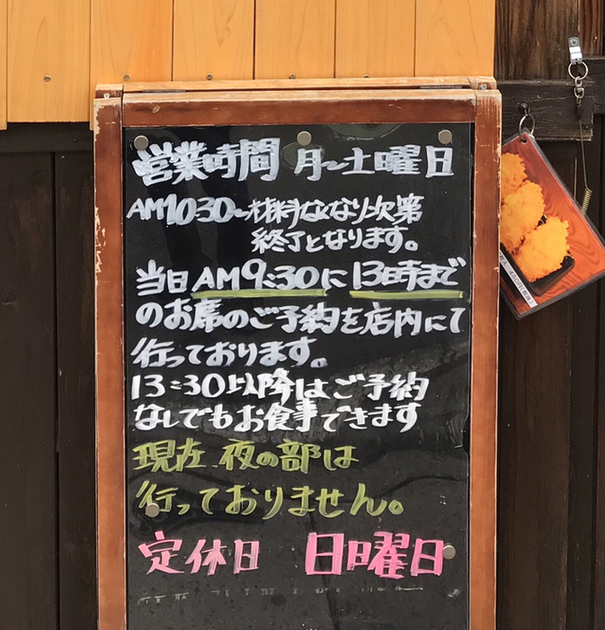 営業時間 月~土曜日
AM10:30~材料なくなり次第
終了となります。
当日AM9:30に13時まで
のお席のご予約を店内にて
行っております。
13:30以降はご予約
なしでもお食事できます
現在 夜の部は
行っておりません。
定休日 日曜日